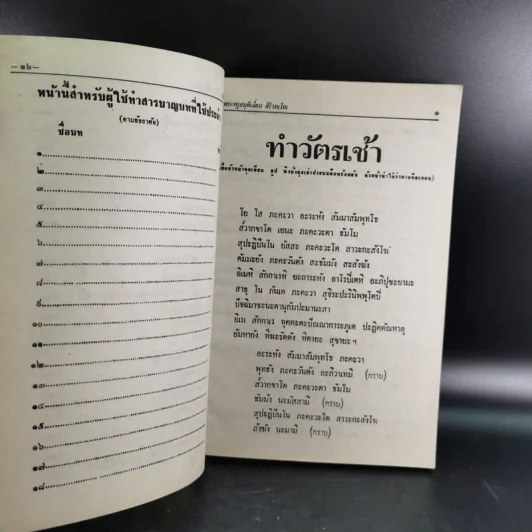 — ๑๖—
หน้านี้สำหรับผู้ใช้ทำสารบาญบทที่ใช้ประจำ
(ตามอัธยาศัย)
ชื่อบท
๑
๒
๓
๔
๕
๖
๗
๘
๙
๑๐
๑๑
๑๒
๑๓
๑๔
๑๕
๑๖
๑๗
๑๘
๑
ทำวัตรเช้า
โย โส ภะคะวา อะระหัง สัมมาสัมพุทโธ
ส๎วากขาโต เยนะ ภะคะวะตา ธัมโม
สุปะฏิปันโน ยัสสะ ภะคะวะโต สาวะกะสังโฆ
ตัมมะยัง ภะคะวันตัง สะธัมมัง สะสังฆัง
อิเมหิ สักกาเรหิ ยะถาระหัง อาโรปิเตหิ อะภิปูชะยามะ
สาธุ โน ภันเต ภะคะวา สุจิระปะรินิพพุโตปิ
ปัจฉิมาชะนะตานุกัมปะมานะสา
อิเม สักกาเร ทุคคะตะปัณณาการะภูเต ปะฏิคคัณหาตุ
อัมหากัง ทีฆะรัตตัง หิตายะ สุขายะ ฯ
อะระหัง สัมมาสัมพุทโธ ภะคะวา
พุทธัง ภะคะวันตัง อะภิวาเทมิ (กราบ)
ส๎วากขาโต ภะคะวะตา ธัมโม
ธัมมัง นะมัสสามิ (กราบ)
สุปะฏิปันโน ภะคะวะโต สาวะกะสังโฆ
สังฆัง นะมามิ (กราบ)